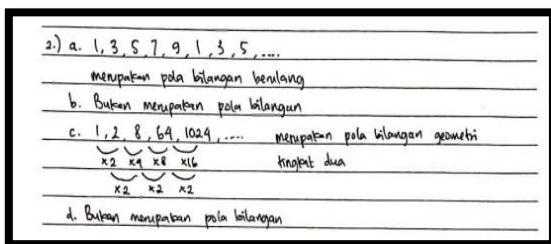 2.) a. 1, 3, 5, 7, 9, 1, 3, 5, ....
merupakan pola bilangan berulang
b. Bukan merupakan pola bilangan
c. 1, 2, 8, 64, 1024, .... merupakan pola bilangan geometri
x2 x4 x8 x16 tingkat dua
x2 x2 x2
d. Bukan merupakan pola bilangan